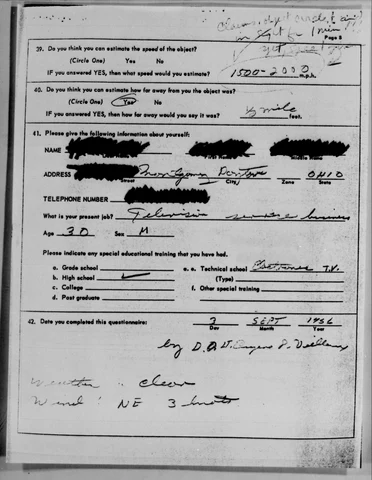 in sight for 1 min
Page 5
39. Do you think you can estimate the speed of the object?
(Circle One) Yes No
IF you answered YES, then what speed would you estimate? 1500-2000 m.p.h.
40. Do you think you can estimate how far away from you the object was?
(Circle One) Yes No
IF you answered YES, then how far away would you say it was? ½ mile feet.
41. Please give the following information about yourself:
NAME
Last Name First Name Middle Name
ADDRESS OHIO
Street City Zone State
TELEPHONE NUMBER
What is your present job? Television service business
Age 30 Sex M
Please indicate any special educational training that you have had.
a. Grade school e. Technical school Electronics T.V.
b. High school ✓ (Type)
c. College f. Other special training
d. Post graduate
42. Date you completed this questionnaire: 3 SEPT 1956
Day Month Year
by
Weather : Clear
Wind : NE 3 knots